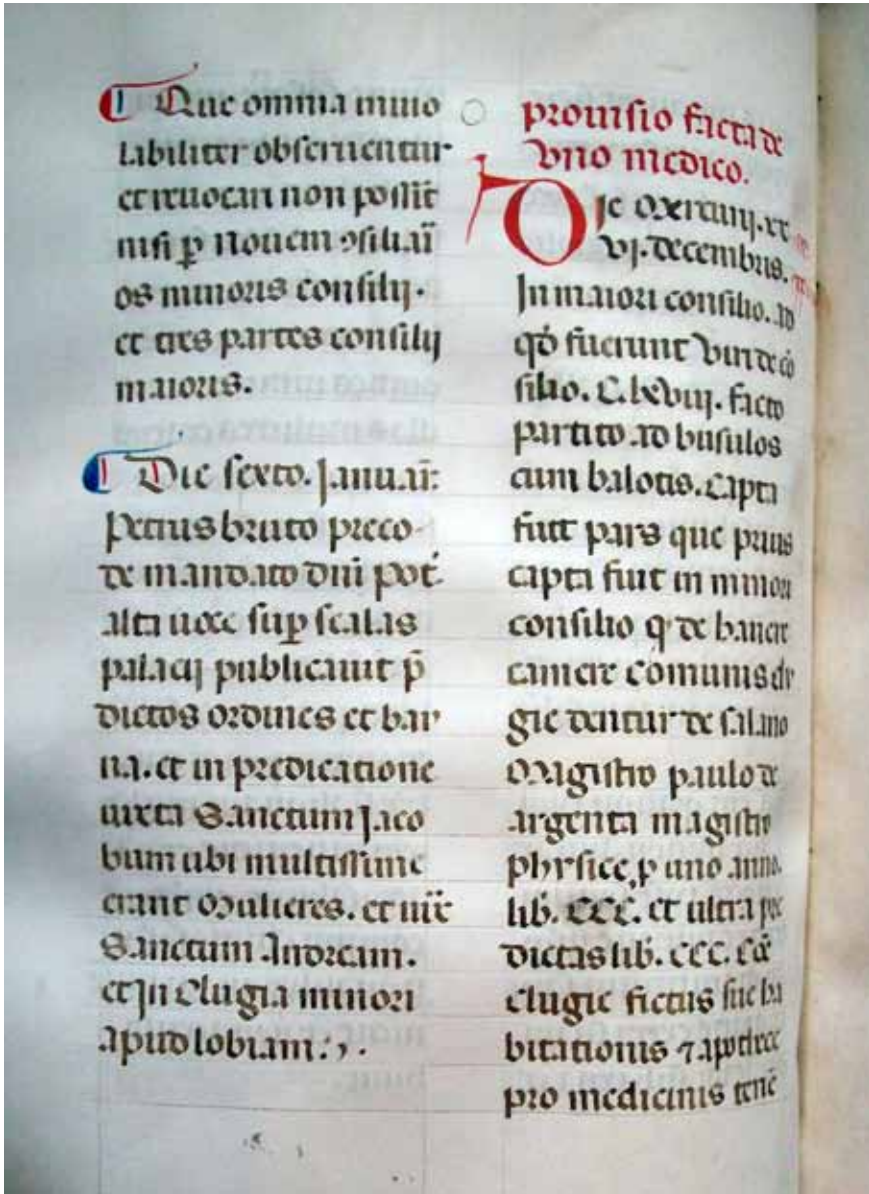 Que omnia inuio
labiliter obseruentur
et reuocari non possīt
nisi ꝑ nouem ↄsiliaī
os minoris consilij.
et tres partes consilij
maioris.
Die sexto. Januaī:
Petrus bruto preco
de mandato dnī pot̄.
alta uoce suꝑ scalas
palacij publicauit p̄
dictos ordines et bar
na. et in predicatione
iuxta Sanctum Jaco
bum ubi multissime
erant Mulieres. et
Sanctum Andream.
et In Clugia minori
apud lobiam:,.
prouisio facta de
vno medico.
Die
vj. decembris.
In maiori consilio. ad
qđ fuerunt Viri de cō
silio. C.lxviij. facto
partito ad busulos
cum balotis. capta
fuit pars que prius
capta fuit in minori
consilio ꝙ de hauere
camere comunis clu
gie dentur de salario
Magistro paulo de
argenta magistro
physice, ꝑ uno anno.
lib. CCC. et ultra pre
dictas lib. CCC.
clugie fictus sue ha
bitationis ⁊ apothece
pro medicinis tenē